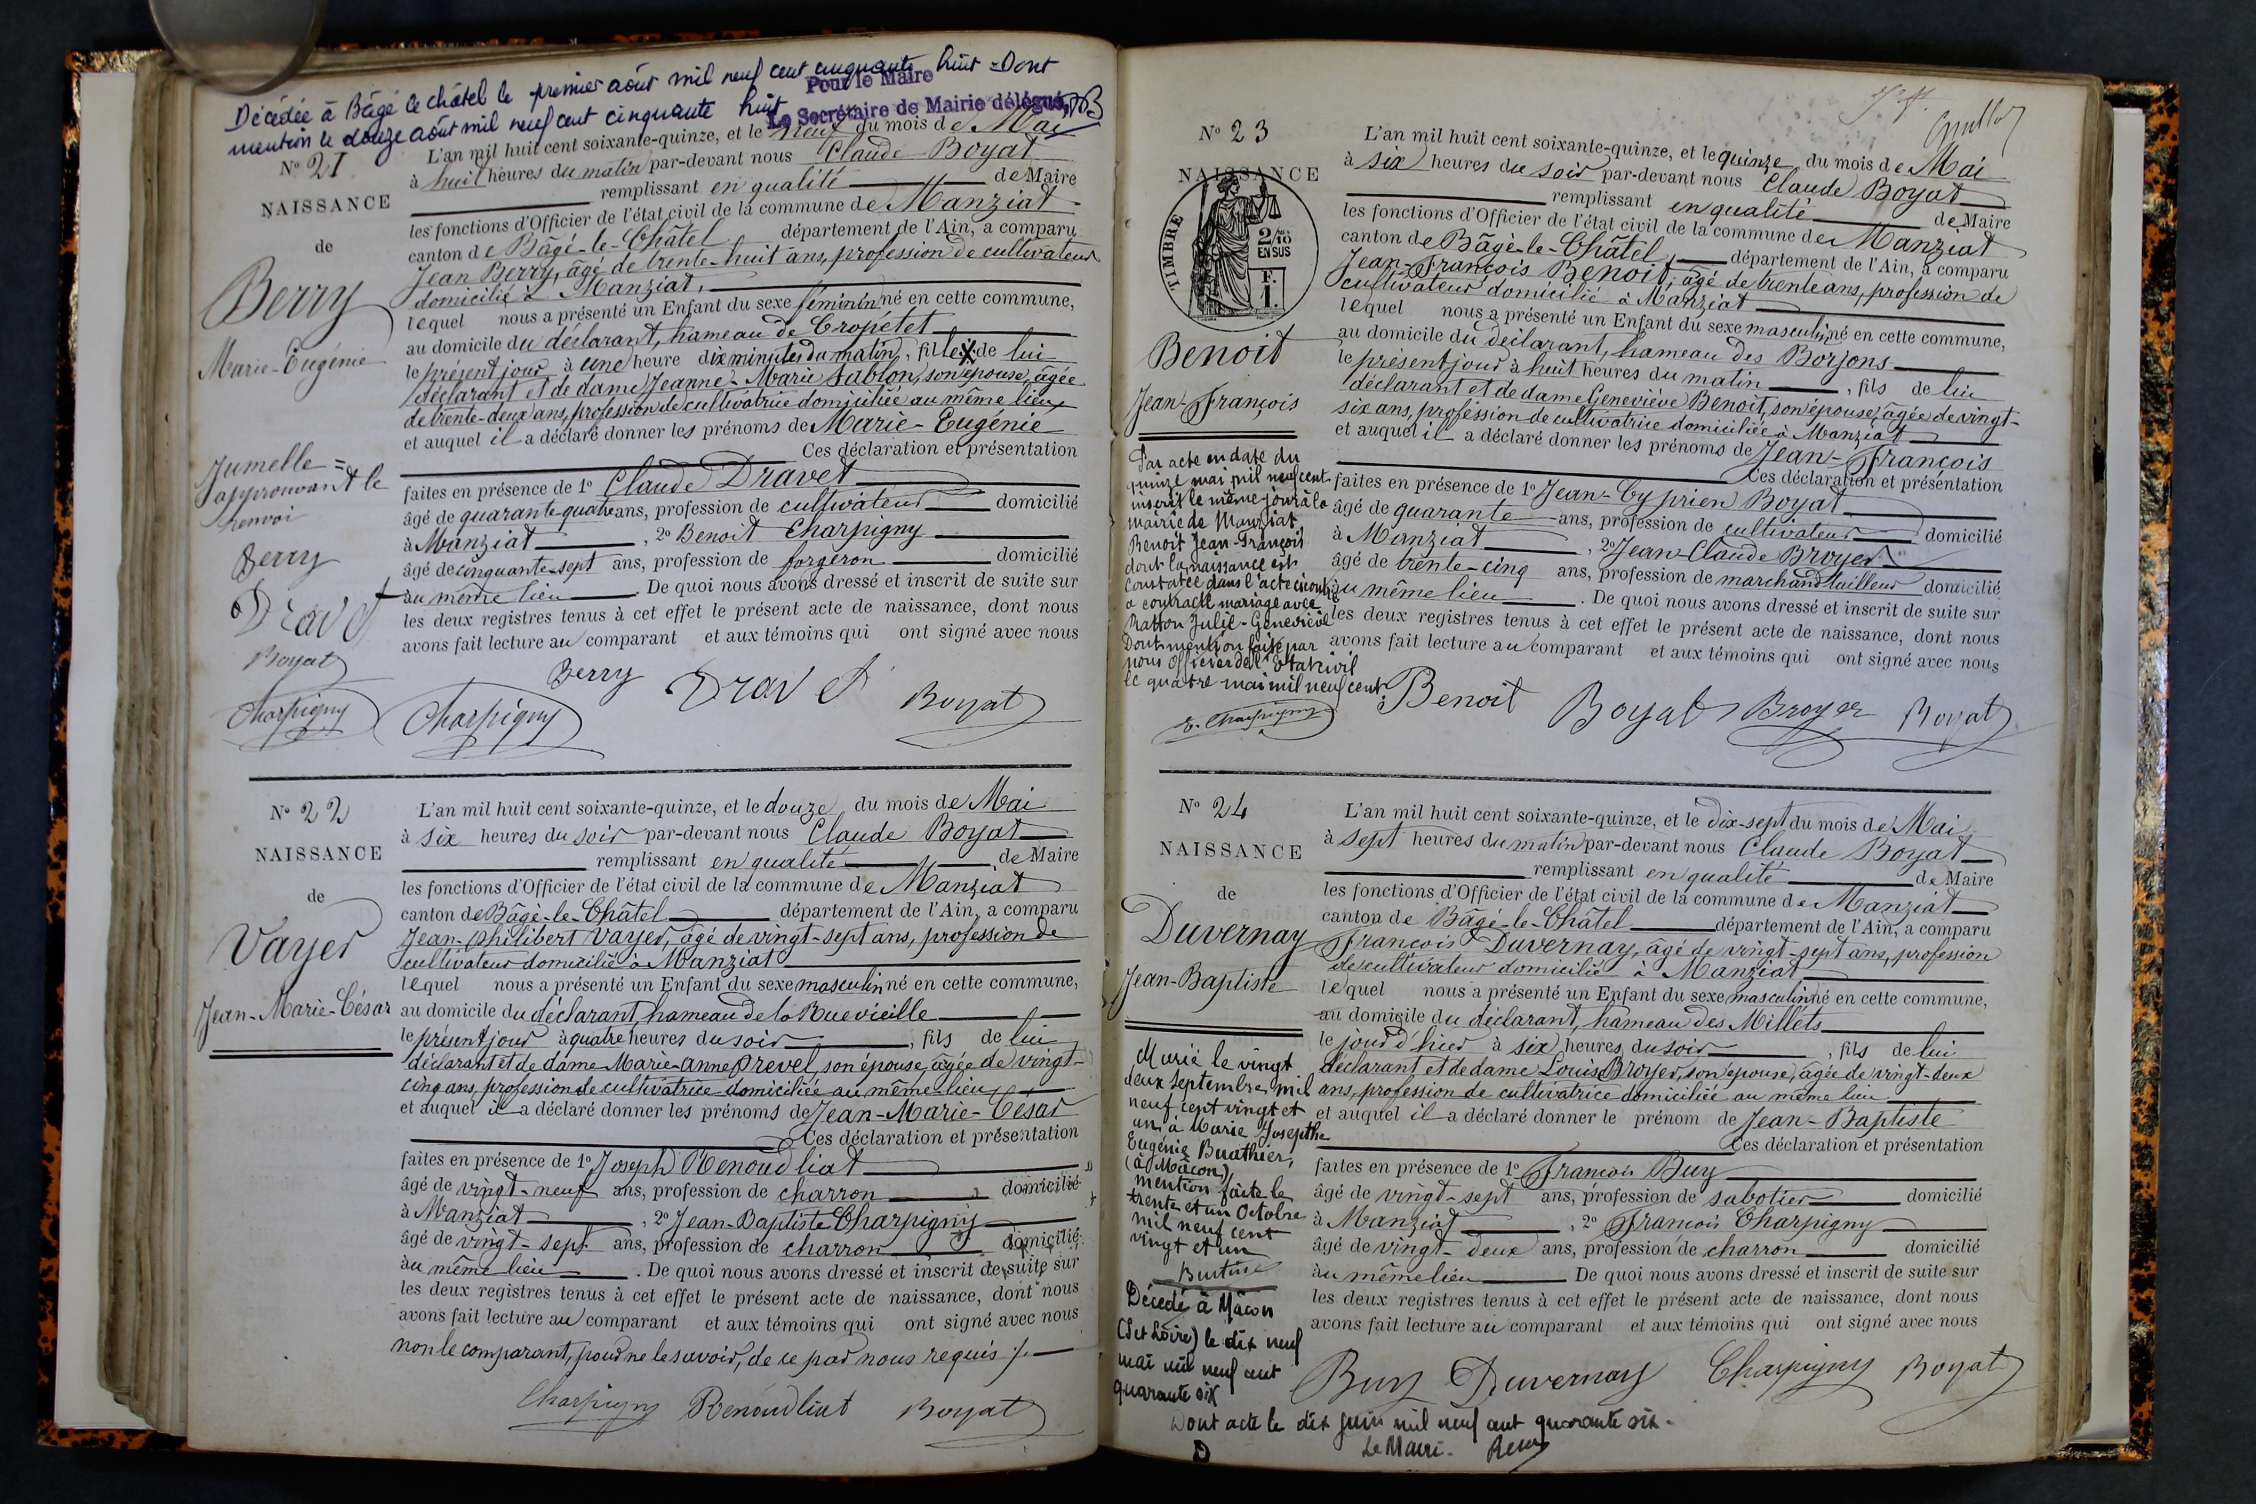 Décédée à Bâgé le châtel le premier août mil neuf cent cinquante huit = Dont
mention le douze août mil neuf cent cinquante huit
Pour le Maire
Le Secrétaire de Mairie délégué,
N° 21
NAISSANCE
de
Berry
Marie-Eugénie
Jumelle =
approuvant le
renvoi
Berry
Dravet
Boyat
Charpigny
L'an mil huit cent soixante-quinze, et le neuf du mois de Mai
à huit heures du matin par-devant nous Claude Boyat
remplissant en qualité de Maire
les fonctions d'Officier de l'état civil de la commune de Manziat
canton de Bâgé-le-Châtel département de l'Ain, a comparu
Jean Berry, âgé de trente-huit ans, profession de cultivateur
domicilié à Manziat,
lequel nous a présenté un Enfant du sexe féminin né en cette commune,
au domicile du déclarant, hameau de Cropétet
le présent jour à une heure dix minutes du matin, fille de lui
déclarant et de dame Jeanne-Marie Sablon, son épouse, âgée
de trente-deux ans, profession de cultivatrice domiciliée au même lieu
et auquel il a déclaré donner les prénoms de Marie-Eugénie
Ces déclaration et présentation
faites en présence de 1° Claude Dravet
âgé de quarante quatre ans, profession de cultivateur domicilié
à Manziat, 2° Benoit Charpigny
âgé de cinquante-sept ans, profession de forgeron domicilié
au même lieu. De quoi nous avons dressé et inscrit de suite sur
les deux registres tenus à cet effet le présent acte de naissance, dont nous
avons fait lecture au comparant et aux témoins qui ont signé avec nous
Berry Dravet Boyat
Charpigny
N° 22
NAISSANCE
de
Vayer
Jean-Marie-César
L'an mil huit cent soixante-quinze, et le douze du mois de Mai
à six heures du soir par-devant nous Claude Boyat
remplissant en qualité de Maire
les fonctions d'Officier de l'état civil de la commune de Manziat
canton de Bâgé-le-Châtel département de l'Ain, a comparu
Jean-Philibert Vayer, âgé de vingt-sept ans, profession de
cultivateur domicilié à Manziat
lequel nous a présenté un Enfant du sexe masculin né en cette commune,
au domicile du déclarant hameau de la Rue vieille
le présent jour à quatre heures du soir, fils de lui
déclarant et de dame Marie-Anne Prevel, son épouse, âgée de vingt-
cinq ans, profession de cultivatrice domiciliée au même lieu
et auquel il a déclaré donner les prénoms de Jean-Marie-César
Ces déclaration et présentation
faites en présence de 1° Joseph Renoud liat
âgé de vingt-neuf ans, profession de charron domicilié
à Manziat, 2° Jean-Baptiste Charpigny
âgé de vingt-sept ans, profession de charron domicilié
au même lieu. De quoi nous avons dressé et inscrit de suite sur
les deux registres tenus à cet effet le présent acte de naissance, dont nous
avons fait lecture au comparant et aux témoins qui ont signé avec nous
non le comparant, pour ne le savoir, de ce par nous requis
Charpigny Renoudliat Boyat
N° 23
NAISSANCE
TIMBRE
2/10
EN SUS
F.
1.
Benoit
Jean-François
Par acte en date du
quinze mai mil neuf cent
inscrit le même jour à la
mairie de Manziat
Benoit Jean-François
dont la naissance est
constatée dans l'acte ci contre
a contracté mariage avec
Ratton Julie-Geneviève
Dont mention faite par
nous Officier de l'Etat civil
le quatre mai mil neuf cent
E. Charpigny
L'an mil huit cent soixante-quinze, et le quinze du mois de Mai
à six heures du soir par-devant nous Claude Boyat
remplissant en qualité de Maire
les fonctions d'Officier de l'état civil de la commune de Manziat
canton de Bâgé-le-Châtel, département de l'Ain, a comparu
Jean-François Benoit, âgé de trente ans, profession de
cultivateur domicilié à Manziat
lequel nous a présenté un Enfant du sexe masculin né en cette commune,
au domicile du déclarant, hameau des Borjons
le présent jour à huit heures du matin, fils de lui
déclarant et de dame Geneviève Benoit, son épouse, âgée de vingt-
six ans, profession de cultivatrice domiciliée à Manziat
et auquel il a déclaré donner les prénoms de Jean-François
Ces déclaration et présentation
faites en présence de 1° Jean-Cyprien Boyat
âgé de quarante ans, profession de cultivateur domicilié
à Manziat, 2° Jean-Claude Broyer
âgé de trente-cinq ans, profession de marchand tailleur domicilié
au même lieu. De quoi nous avons dressé et inscrit de suite sur
les deux registres tenus à cet effet le présent acte de naissance, dont nous
avons fait lecture au comparant et aux témoins qui ont signé avec nous
Benoit Boyat Broyer Boyat
N° 24
NAISSANCE
de
Duvernay
Jean-Baptiste
Marié le vingt
deux Septembre mil
neuf cent vingt et
un à Marie Josepthe
Eugénie Buathier,
(à Mâcon),
mention faite le
trente et un Octobre
mil neuf cent
vingt et un
Décedé à Mâcon
(S et Loire) le dix neuf
mai mil neuf cent
quarante six
Dont acte le dix juin mil neuf cent quarante six.
Le Maire.
L'an mil huit cent soixante-quinze, et le dix-sept du mois de Mai
à sept heures du matin par-devant nous Claude Boyat
remplissant en qualité de Maire
les fonctions d'Officier de l'état civil de la commune de Manziat
canton de Bâgé-le-Châtel département de l'Ain, a comparu
François Duvernay, âgé de vingt-sept ans, profession
de cultivateur domicilié à Manziat
lequel nous a présenté un Enfant du sexe masculin né en cette commune,
au domicile du déclarant, hameau des Millets
le jour d'hier à six heures du soir, fils de lui
déclarant et de dame Louise Broyer, son épouse, âgée de vingt-deux
ans, profession de cultivatrice domiciliée au même lieu
et auquel il a déclaré donner le prénom de Jean-Baptiste
Ces déclaration et présentation
faites en présence de 1° François Buy
âgé de vingt-sept ans, profession de sabotier domicilié
à Manziat, 2° François Charpigny
âgé de vingt-deux ans, profession de charron domicilié
au même lieu De quoi nous avons dressé et inscrit de suite sur
les deux registres tenus à cet effet le présent acte de naissance, dont nous
avons fait lecture au comparant et aux témoins qui ont signé avec nous
Buy Duvernay Charpigny Boyat